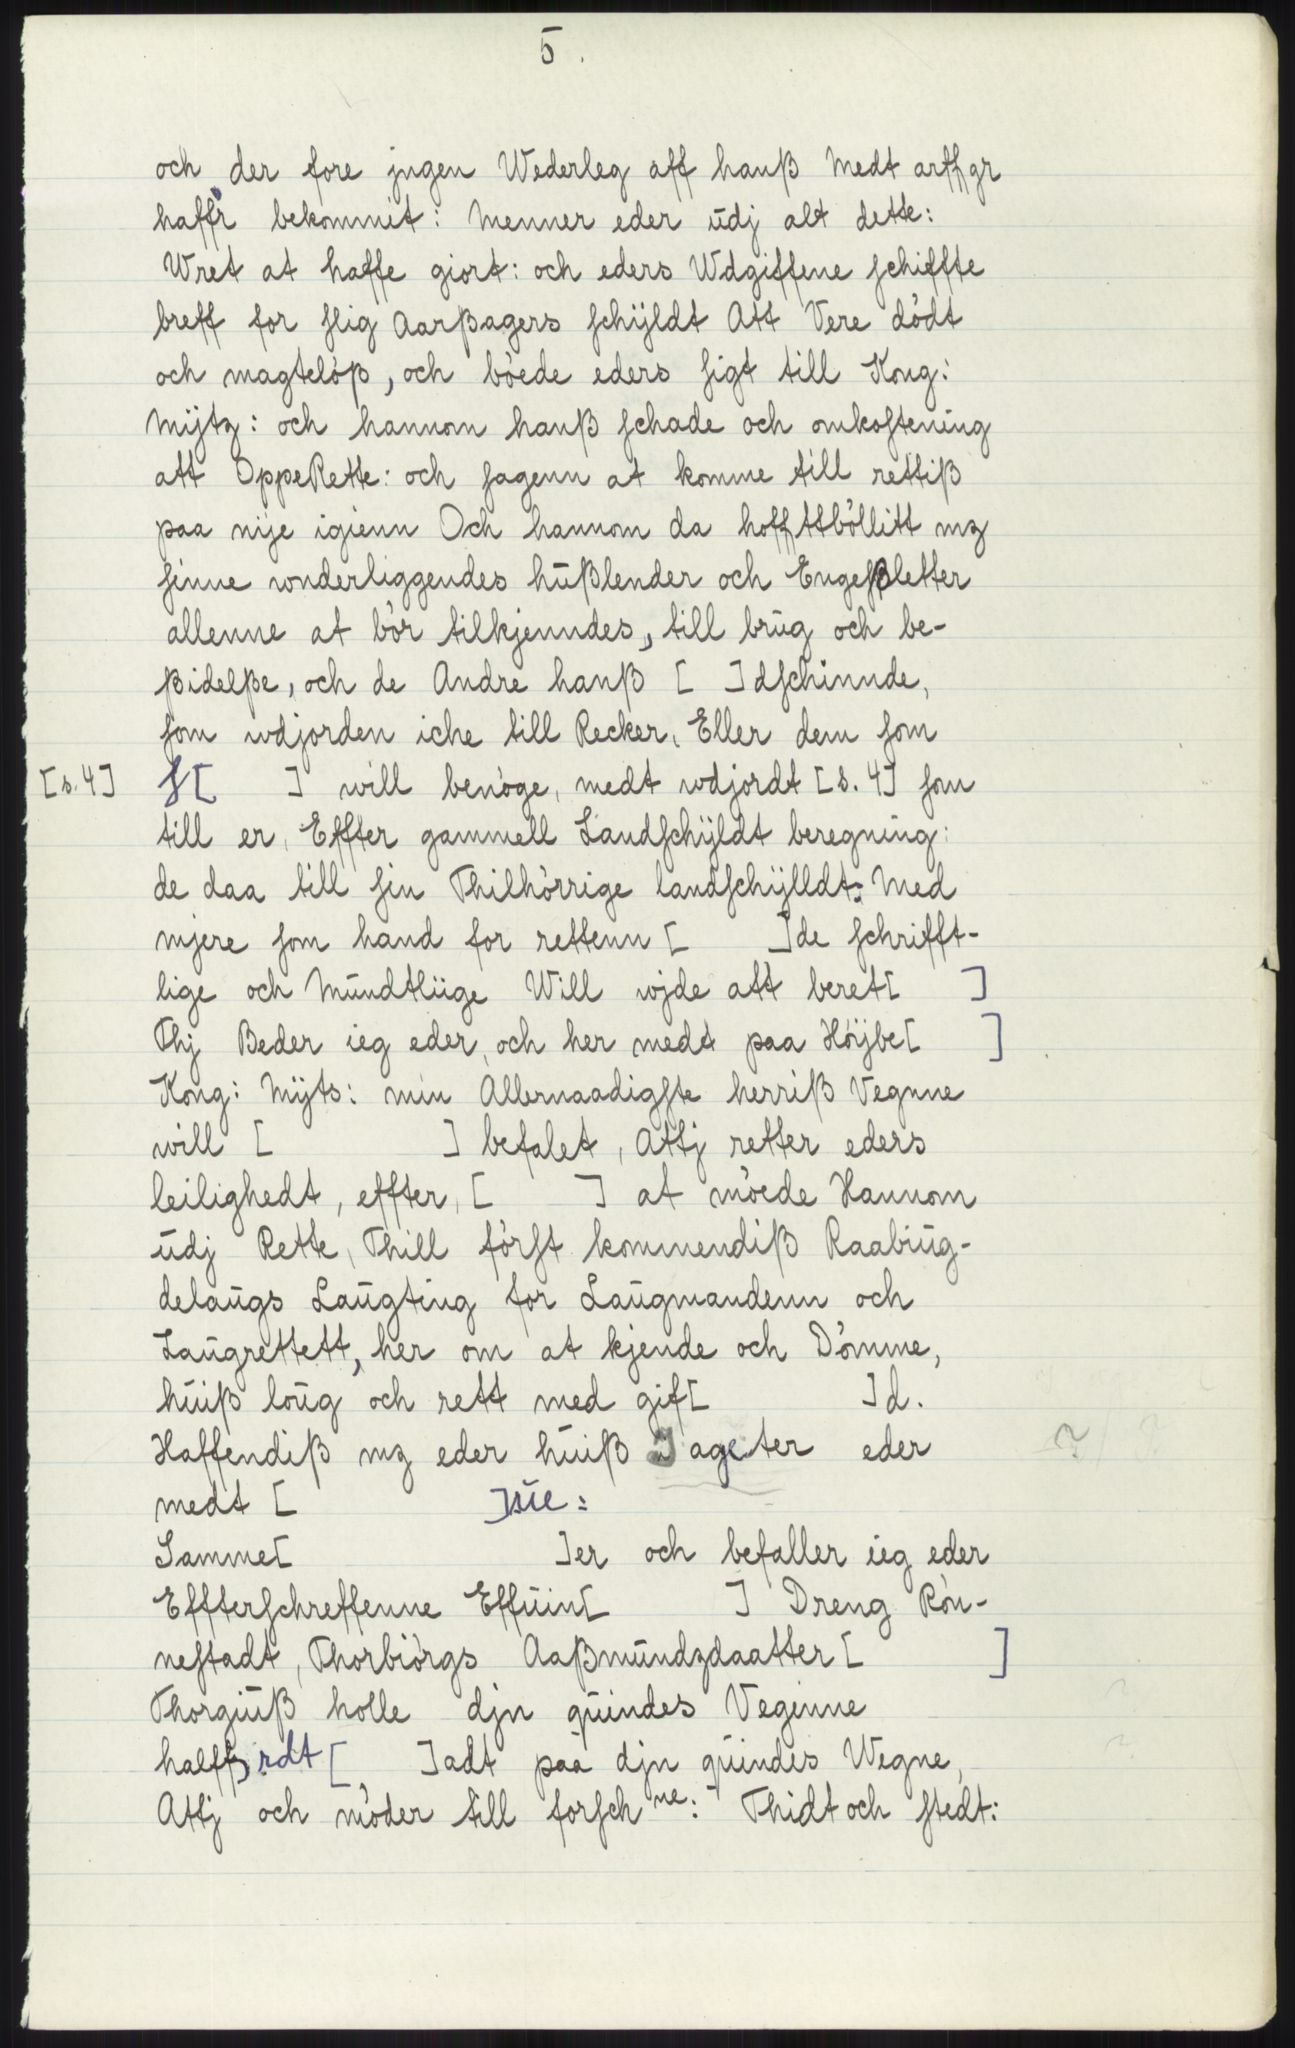 5.
och der fore jngen Wederleg aff hanß Medt arffgr
haffr bekommit: Menner eder udj alt dette:
Wret at haffe giort: och eders Wdgiffene schiffte
breff for slig Aarßagers schÿldt Att Vere dödt
och magteløß, och böede eders sigt till Kong:
Mÿtz: och hannom hanß schade och omkostening
att OppeRette: och sagenn at komme till rettiß
paa nije igienn Och hannom da hoffttböllitt mz
sinne wnderliggendes hußlender och Engeßletter
allenne at bör tilkjenndes, till brug och be-
ßidelße, och de Andre hanß [ ]dschinnde,
som wdjorden iche till Recker, Eller dem som
[s.4] s[ ] will benöge, medt wdjordt [s. 4] som
till er, Effter gammell Landschÿldt beregning:
de daa till sin Thilhörrige landschÿlldt: Med
mjere som hand for rettenn [ ]de schrifft-
lige och Mundtliige Will wjde att beret[ ]
Thj Beder ieg eder, och her medt paa Höÿbe[ ]
Kong: Mÿts: min Allernaadigste herriß Vegnne
will [ ] befalet, Attj retter eders
leilighedt, effter, [ ] at möede Hannom
udj Rette, Thill först kommendiß Raabiug-
delaugs Laugting for Laugmandenn och
Laugrettett, her om at kjende och Dömme,
huiß loug och rett med gif[ ]d.
Haffendiß mz eder huiß ]ageter eder ?
medt [ ]sie:
Samme[ ]er och befaller ieg eder
Effterschreffenne Effuin[ ] Dreng Rön-
nestadt, Thorbiörgs Aaßmundzdaatter [ ]
Thorgiuß holle djn quindes Veginne
halffrdt [ ]adt paa djn quindes Wegne,
Attj och möder till forsch ne: Thidt och stedt: